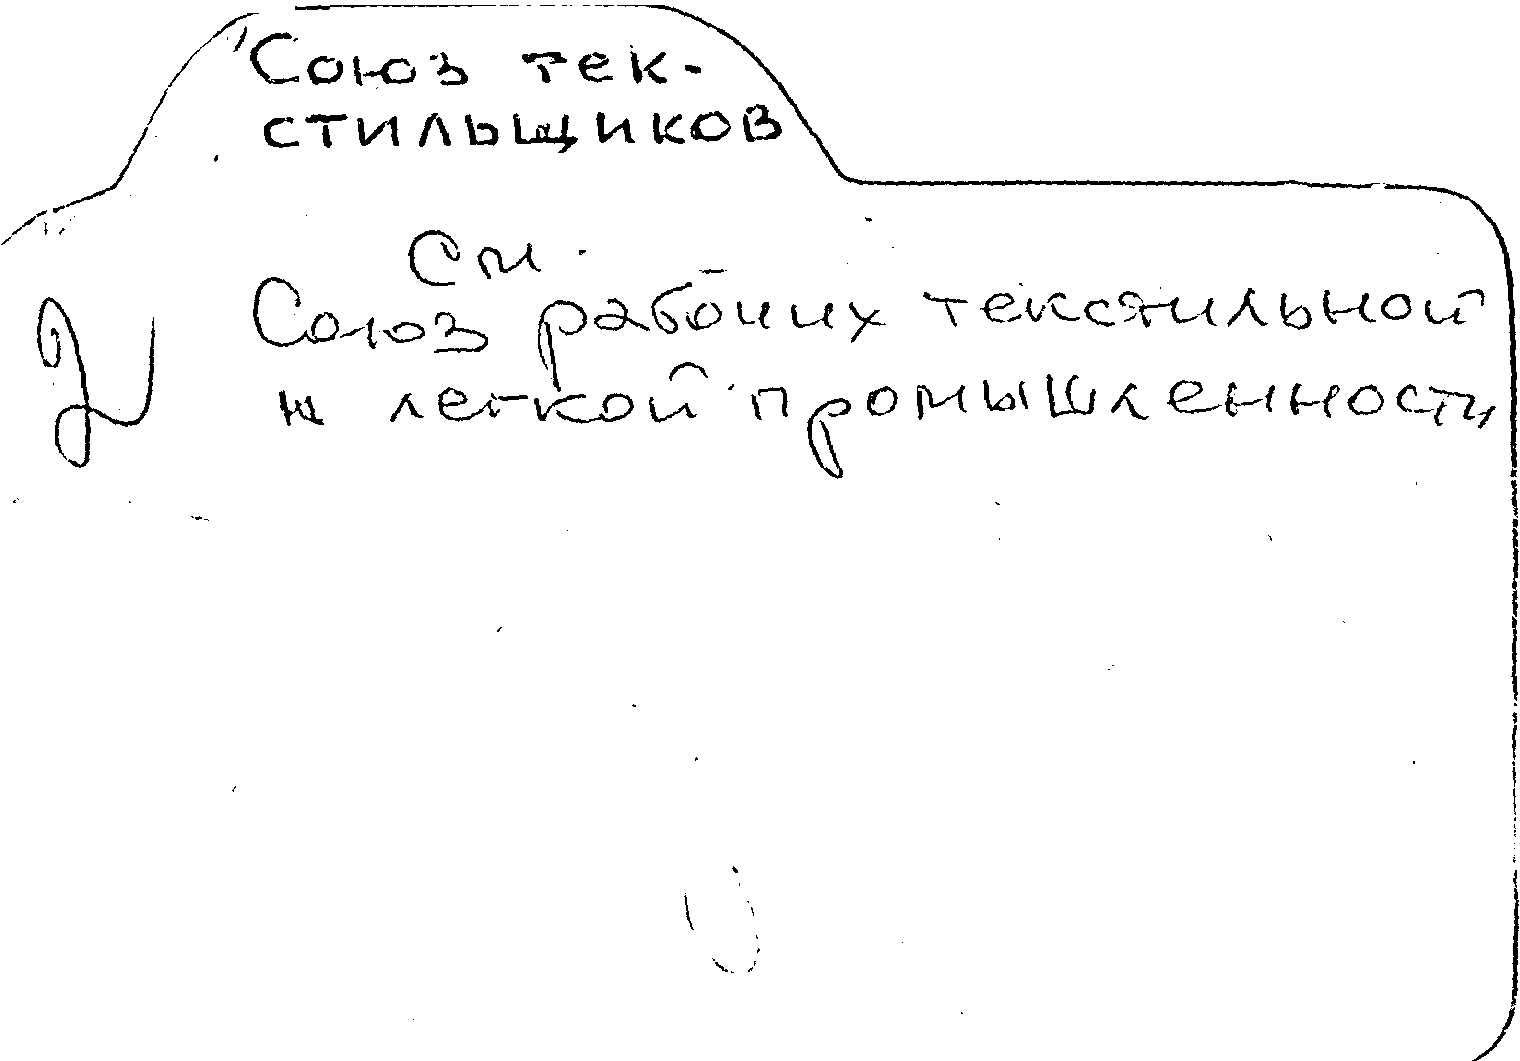 Союз тек-
стильщиков
См.
Союз рабочих текстильной
и легкой промышленности